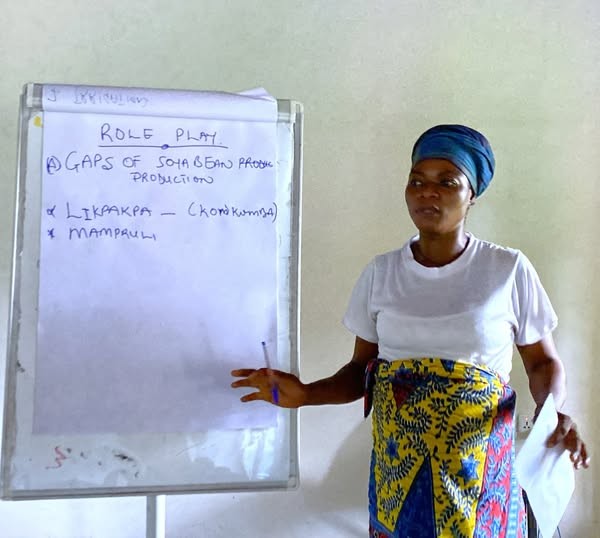 ROLE PLAY.
A) GAPS OF SOYABEAN PRODUC
PRODUCTION
* LIKPAKPA — (KONKUMBA)
* MAMPRULI